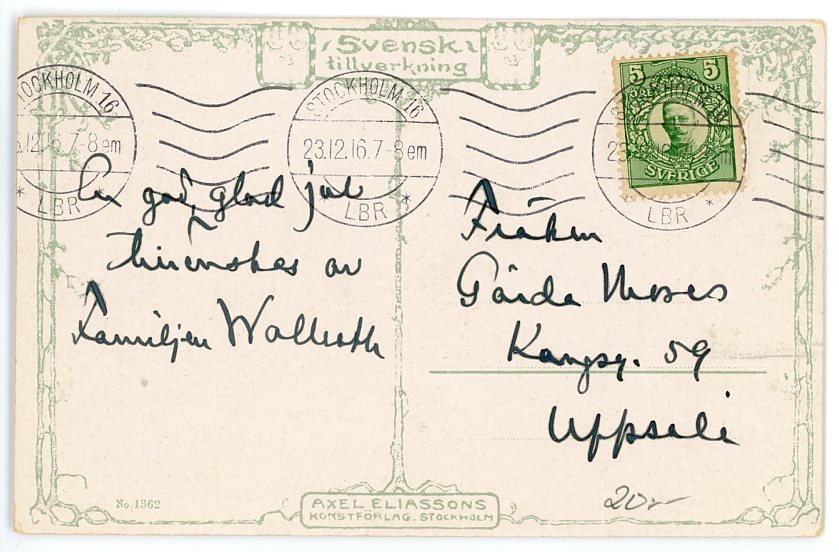 Svensk
tillverkning
STOCKHOLM 16
23.12.16.7-8em
LBR
STOCKHOLM 16
23.12.16.7-8em
LBR
5 5
SVERIGE
LBR
En god, glad jul
tillönskas av
Familjen Wallroth
Fröken
Gärda Moses
Kungsg. 59
Uppsala
20:-
No. 1362
AXEL ELIASSONS
KONSTFÖRLAG. STOCKHOLM